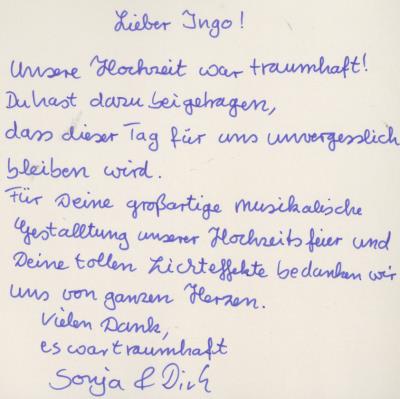 Lieber Ingo!
Unsere Hochzeit war traumhaft!
Du hast dazu beigetragen,
dass dieser Tag für uns unvergesslich
bleiben wird.
Für Deine großartige musikalische
Gestalltung unserer Hochzeitsfeier und
Deine tollen Lichteffekte bedanken wir
uns von ganzen Herzen.
Vielen Dank,
es war traumhaft
Sonja & Dirk